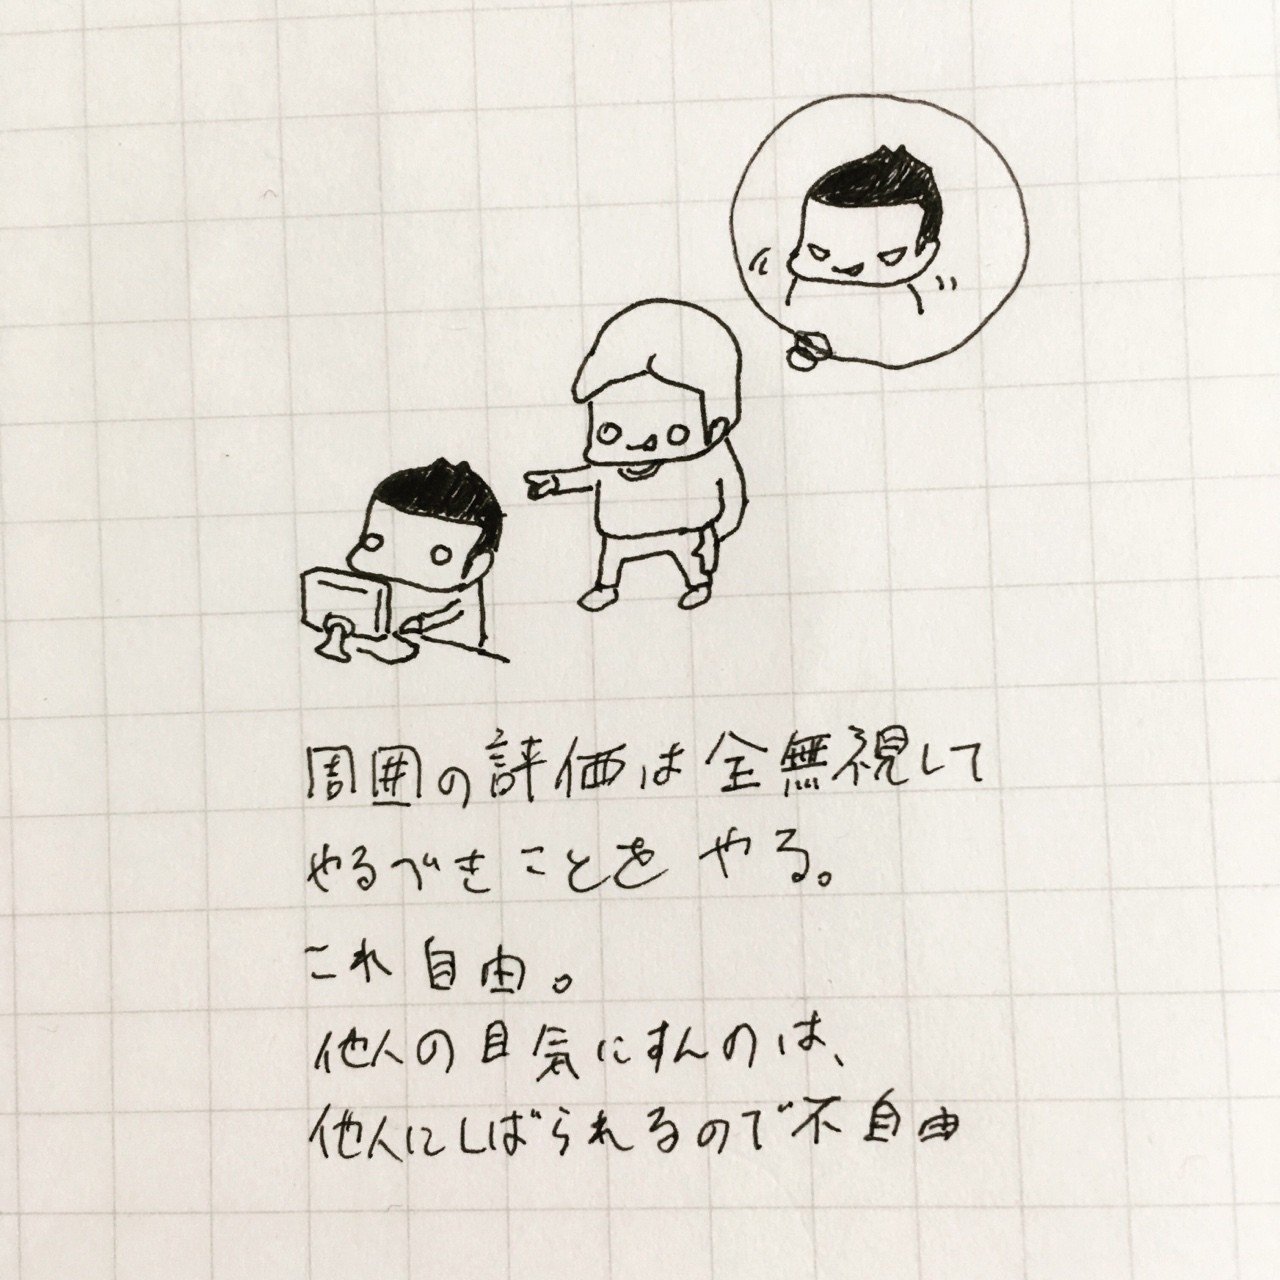 周囲の評価は全無視して
やるべきことをやる。
これ自由。
他人の目気にすんのは、
他人にしばられるので不自由